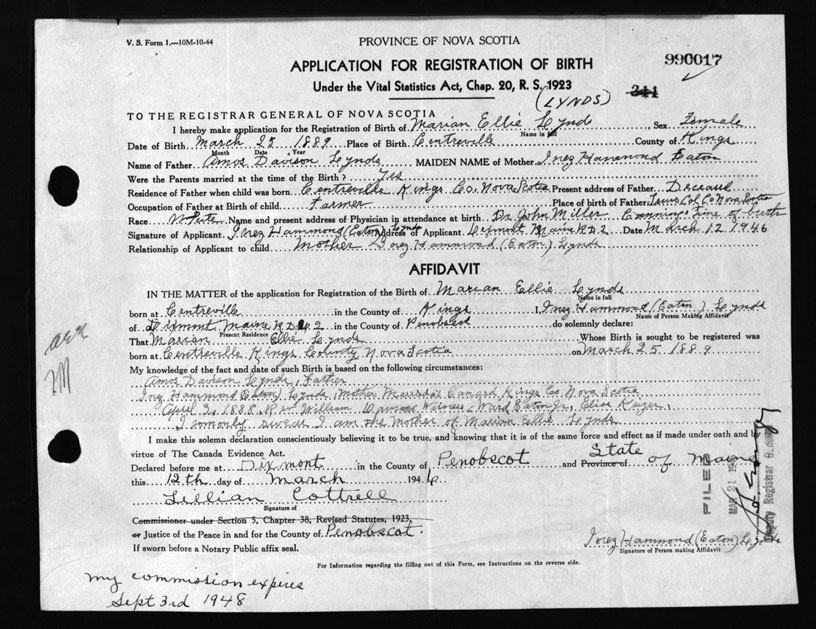 V. S. Form 1.—10M-10-44
PROVINCE OF NOVA SCOTIA
APPLICATION FOR REGISTRATION OF BIRTH
990017
Under the Vital Statistics Act, Chap. 20, R. S. 1923
344
(LYNDS)
TO THE REGISTRAR GENERAL OF NOVA SCOTIA
I hereby make application for the Registration of Birth of Marian Ellie Lynds Sex Female
Name in full
Date of Birth March 25 1889 Place of Birth Centreville County of Kings
Month Date Year
Name of Father Amos Davison Lynds MAIDEN NAME of Mother Inez Hammond Eaton
Were the Parents married at the time of the Birth? Yes
Residence of Father when child was born Centreville Kings Co. Nova Scotia Present address of Father Deceased
Occupation of Father at Birth of child Farmer Place of Birth of Father Col Co Nova Scotia
Race White Name and present address of Physician in attendance at birth Dr. John Miller Canning Time of birth
Signature of Applicant Inez Hammond (Eaton) Lynds Address of Applicant Dixmont Maine R.D. 2. Date March 12 1946
Relationship of Applicant to child Mother Inez Hammond (Eaton) Lynds
AFFIDAVIT
IN THE MATTER of the application for Registration of the Birth of Marian Ellie Lynds
Name in full
born at Centreville in the County of Kings I, Inez Hammond (Eaton) Lynds
Name of Person Making Affidavit
of Dixmont Maine R.D. 2 in the County of Penobscot do solemnly declare:
Present Residence
That Marian Ellie Lynds Whose Birth is sought to be registered was
born at Centreville Kings County Nova Scotia on March 25 1889
My knowledge of the fact and date of such Birth is based on the following circumstances:
Amos Davison Lynds, Father
Inez Hammond (Eaton) Lynds Mother Married Canard Kings Co. Nova Scotia
April 3, 1888. Rev William Ward Eaton Jr, Eliza
I solemnly swear I am the Mother of Marian Ellie Lynds
I make this solemn declaration conscientiously believing it to be true, and knowing that it is of the same force and effect as if made under oath and by
virtue of The Canada Evidence Act.
Declared before me at Dixmont in the County of Penobscot and Province of State of Maine
this 12th day of March 1946.
Lillian Cottrell
Signature of
Commissioner under Section 5, Chapter 38, Revised Statutes, 1923,
or Justice of the Peace in and for the County of Penobscot.
If sworn before a Notary Public affix seal.
Inez Hammond (Eaton) Lynds
Signature of Person making Affidavit
For Information regarding the filling out of this Form, see Instructions on the reverse side.
my commission expires
Sept 3rd 1948
FILED
MAR 21
Deputy Registrar General